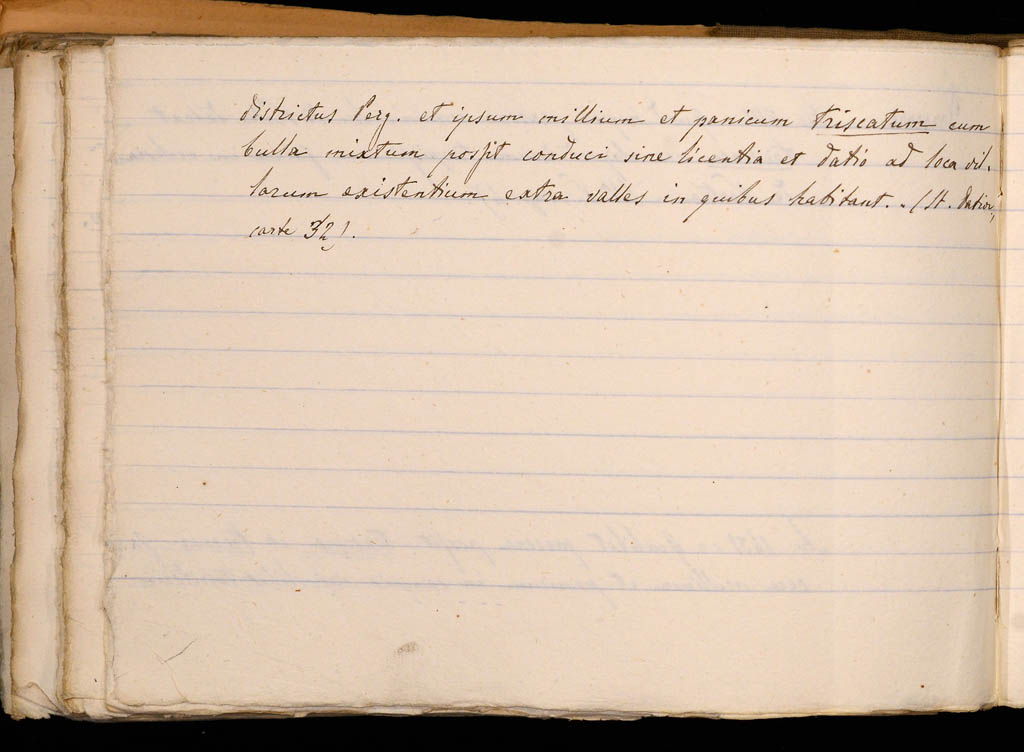 districtus Perg. et ipsum millium et panicum triscatum cum
bulla mixtum possit conduci sine licentia et datio ad loca vil-
larum existentium extra valles in quibus habitant. . (St. Dation.
carte 32).